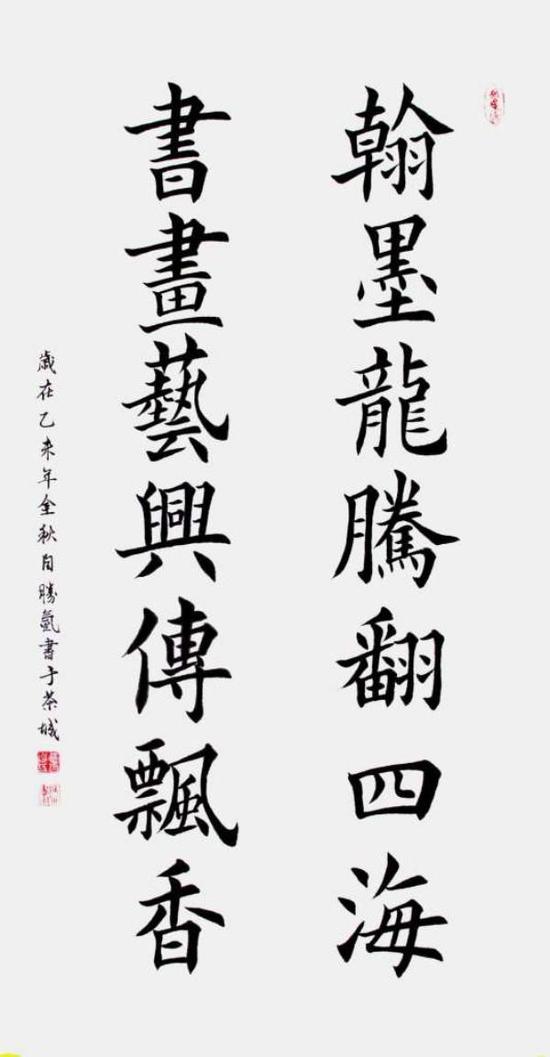 翰墨龍騰翻四海
書畫藝興傳飄香
歲在乙未年金秋月勝氣書于茶城